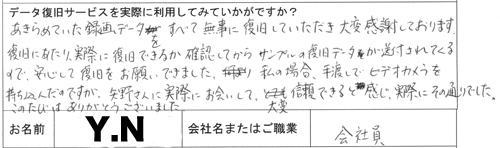 データ復旧サービスを実際に利用してみていかがですか?
あきらめていた録画データをすべて無事に復旧していただき大変感謝しております。
復旧にあたり、実際に復旧できるか確認してからサンプルの復旧データが送付されてくる
ので、安心して復旧をお願いできました。私の場合、手渡しでビデオカメラを
持ち込んだのですが、矢野さんに実際にお会いして、大変信頼できると感じ、実際にその通りでした。
このたびはありがとうございました。
お名前 Y.N 会社名またはご職業 会社員